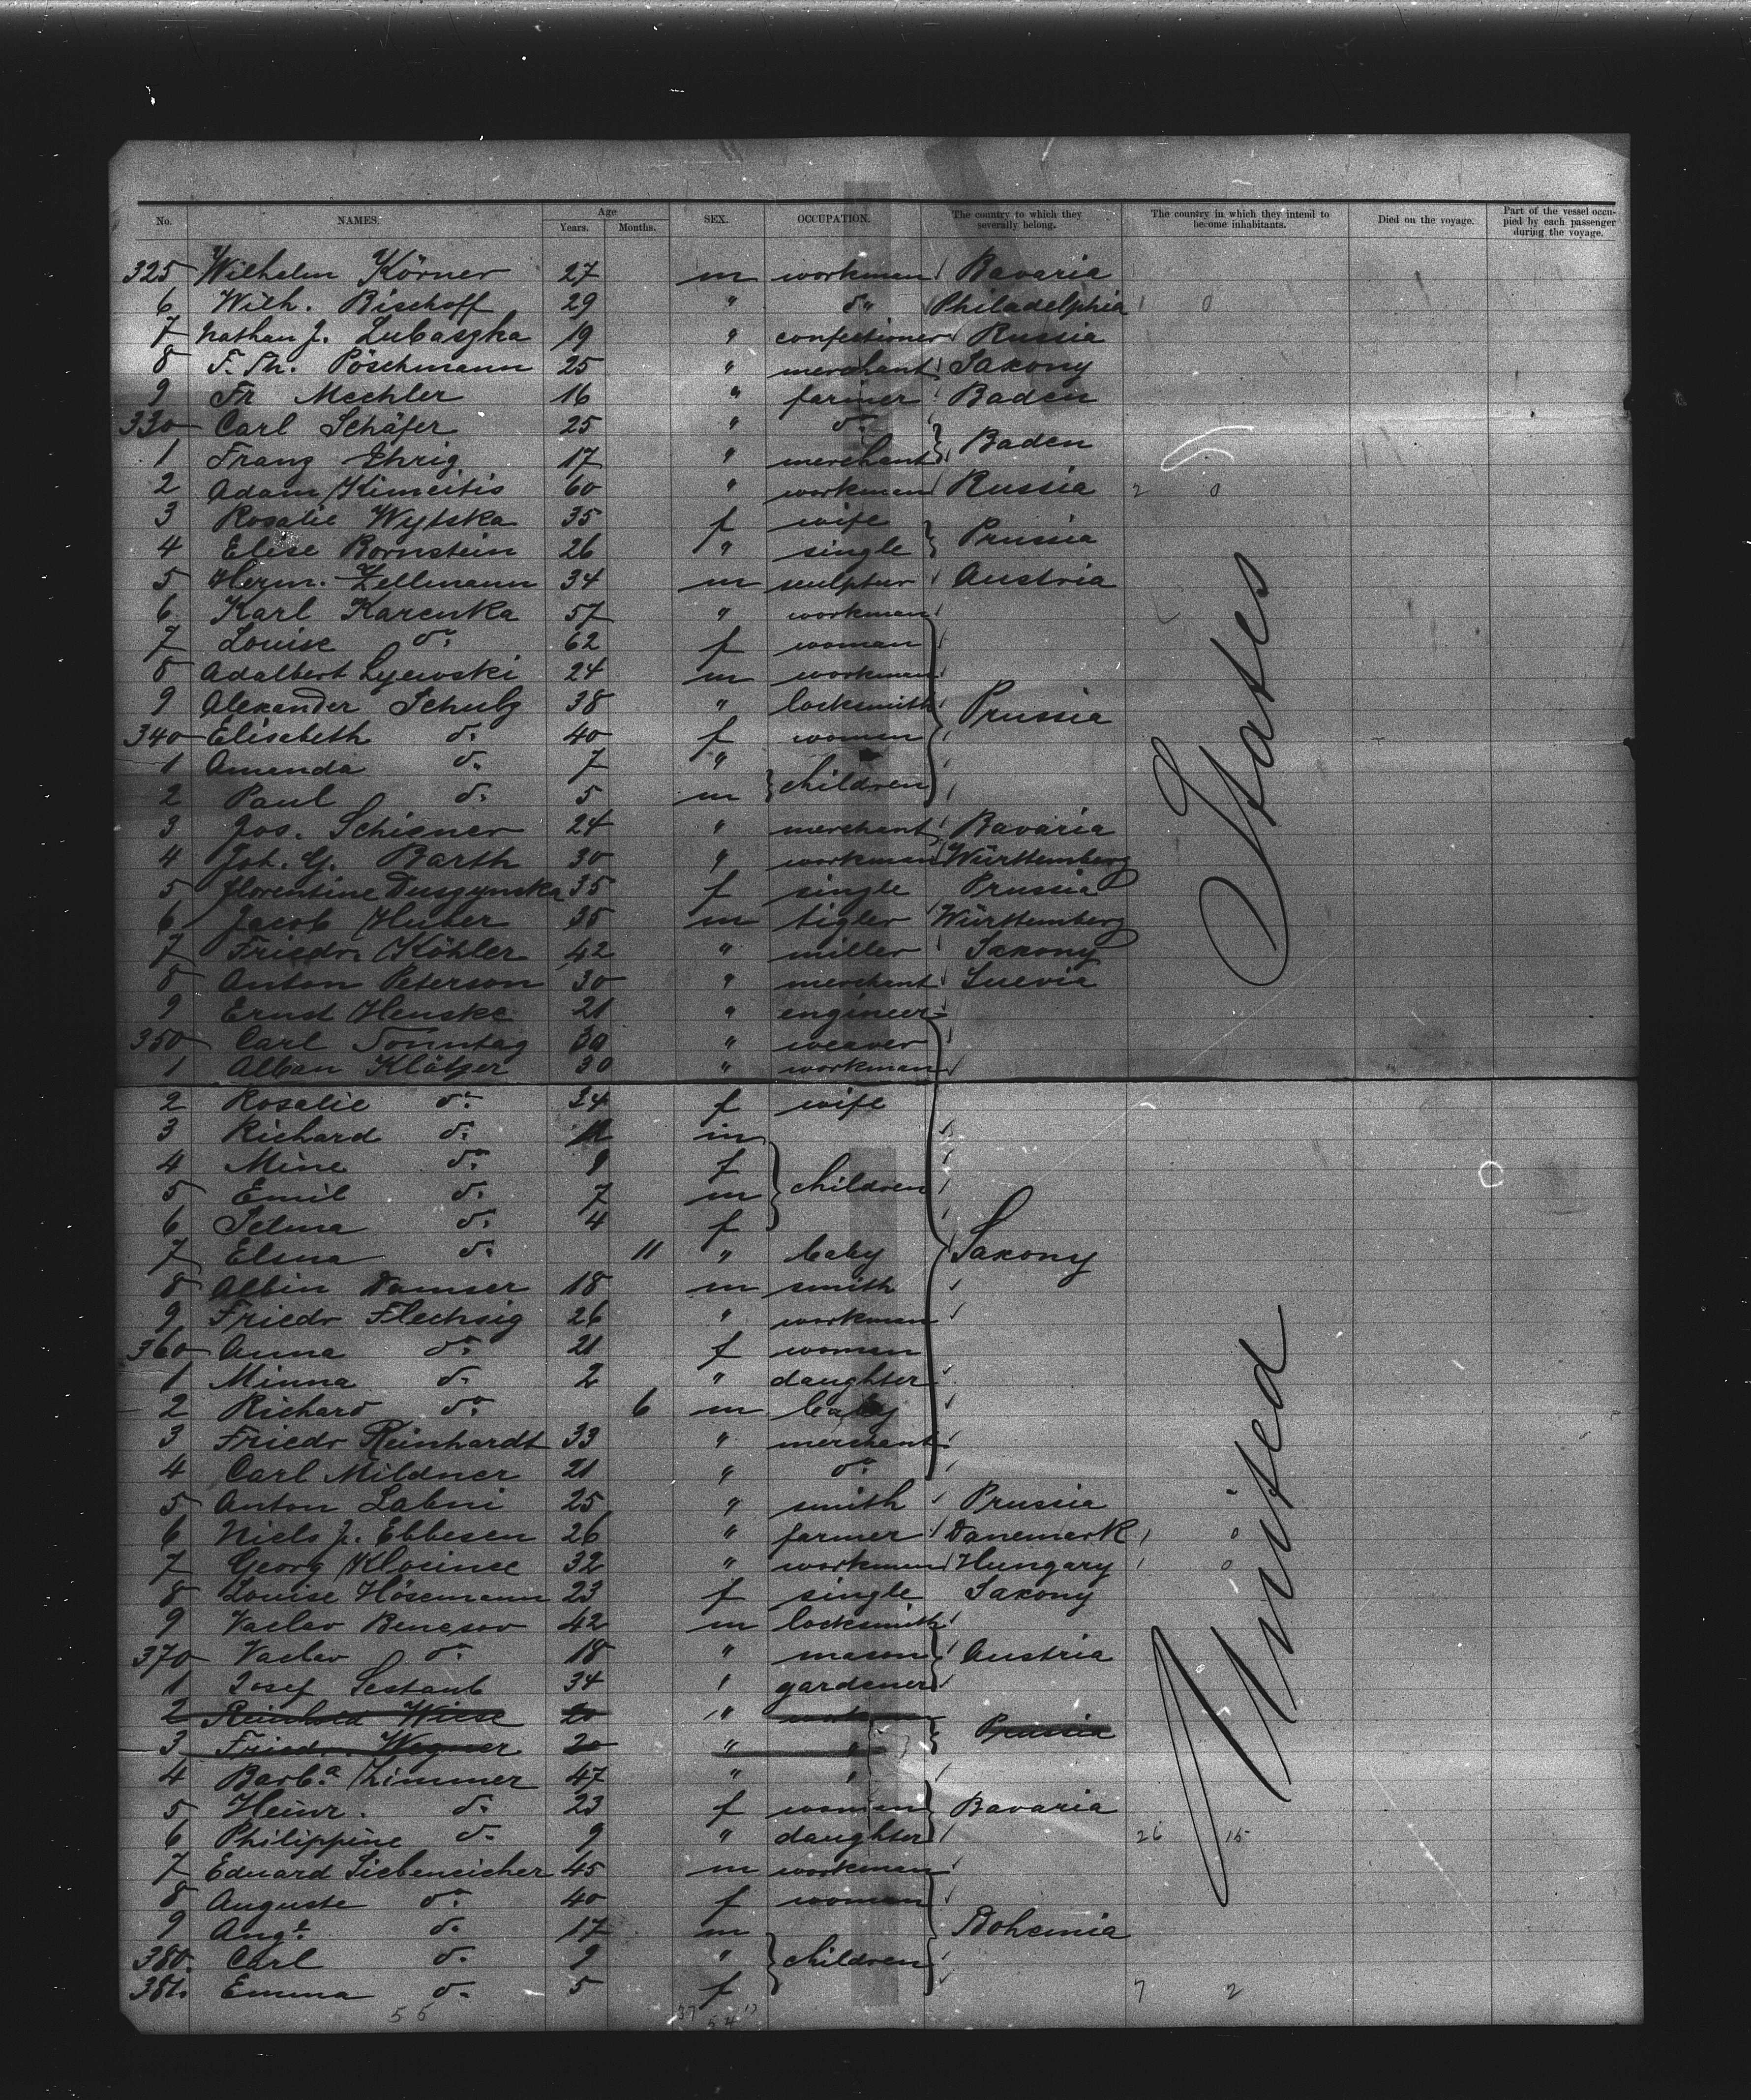 No. NAMES. Age Years. Months. SEX. OCCUPATION. The country to which they severally belong. The country in which they intend to become inhabitants. Died on the voyage. Part of the vessel occupied by each passenger during the voyage.
325 Wilhelm Körner 27 m workman Bavaria
6 Wilh. Bischoff 29 " do " Philadelphia
7 Nathan J. Lubaszka 19 " confectioner Russia
8 F. Th. Pöschmann 25 " merchant Saxony
9 Fr Mechler 16 " farmer Baden
330 Carl Schäfer 25 " do
1 Franz Ihrig 17 " merchant Baden
2 Adam Kimeitis 60 " workman Russia 2 0
3 Rosalie Wytska 35 f wife
4 Elise Bornstein 26 " single Prussia
5 Herm. Zellmann 34 m sculptur Austria
6 Karl Karenka 57 " workman
7 Louise do 62 f woman
8 Adalbert Lyewski 24 m workman
9 Alexander Schulz 38 " locksmith Prussia
340 Elisabeth do 40 f women
1 Amanda do 7 "
2 Paul do 5 m children
3 Jos. Schiener 24 " merchant Bavaria
4 Joh. G. Barth 30 " workman Württemberg
5 Florentine Duszynska 35 f single Prussia
6 Jacob Huber 35 m tigler Württemberg
7 Friedr. Köhler 42 " miller Saxony
8 Anton Peterson 30 " merchant Suevia
9 Ernst Henske 21 " engineer
350 Carl Sonntag 30 " weaver
1 Alban Klötzer 30 " workman
2 Rosalie do 34 f wife
3 Richard do 11 m
4 Mine do 9 f
5 Emil do 7 m children
6 Selma do 4 f
7 Elsna do 11 " baby Saxony
8 Albin Damser 18 m smith
9 Friedr Flechsig 26 " workman
360 Anna do 21 f woman
1 Minna do 2 " daughter
2 Richard do 6 m baby
3 Friedr Reinhardt 33 " merchant
4 Carl Mildner 21 " do
5 Anton Labni 25 " smith Prussia
6 Niels J. Ebbesen 26 " farmer Danemark 0
7 Georg Klocince 32 " workman Hungary 0
8 Louise Hösemann 23 f single Saxony
9 Vaclav Benesov 42 m locksmith
370 Vaclav do 18 " mason Austria
1 Josef Sestaub 34 " gardener
2 Reinhold Wiese 20 " workman
3 Friedr. Wegner 20 " " Prussia
4 Barb.a Zimmer 47 " "
5 Heinr. do 23 f woman Bavaria
6 Philippine do 9 " daughter 26 15
7 Eduard Siebeneicher 45 m workman
8 Auguste do 40 f woman
9 Aug.e do 17 m Bohemia
380. Carl do 9 " children
381. Emma do 5 f 7 2
55 37 17
54
United States